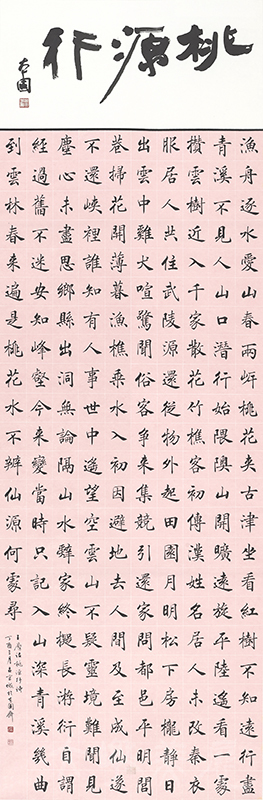 桃源行
漁舟逐水愛山春兩岸桃花夾古津坐看紅樹不知遠行盡
青溪不見人山口潛行始隈隩山開曠望旋平陸遙看一處
攢雲樹近入千家散花竹樵客初傳漢姓名居人未改秦衣
服居人共住武陵源還從物外起田園月明松下房櫳靜日
出雲中雞犬喧驚聞俗客爭來集競引還家問都邑平明閭
巷掃花開薄暮漁樵乘水入初因避地去人間及至成仙遂
不還峽裡誰知有人事世中遙望空雲山不疑靈境難聞見
塵心未盡思鄉縣出洞無論隔山水辭家終擬長游衍自謂
經過舊不迷安知峰壑今來變當時只記入山深青溪幾曲
到雲林春來遍是桃花水不辨仙源何處尋
王維詩桃源行詩